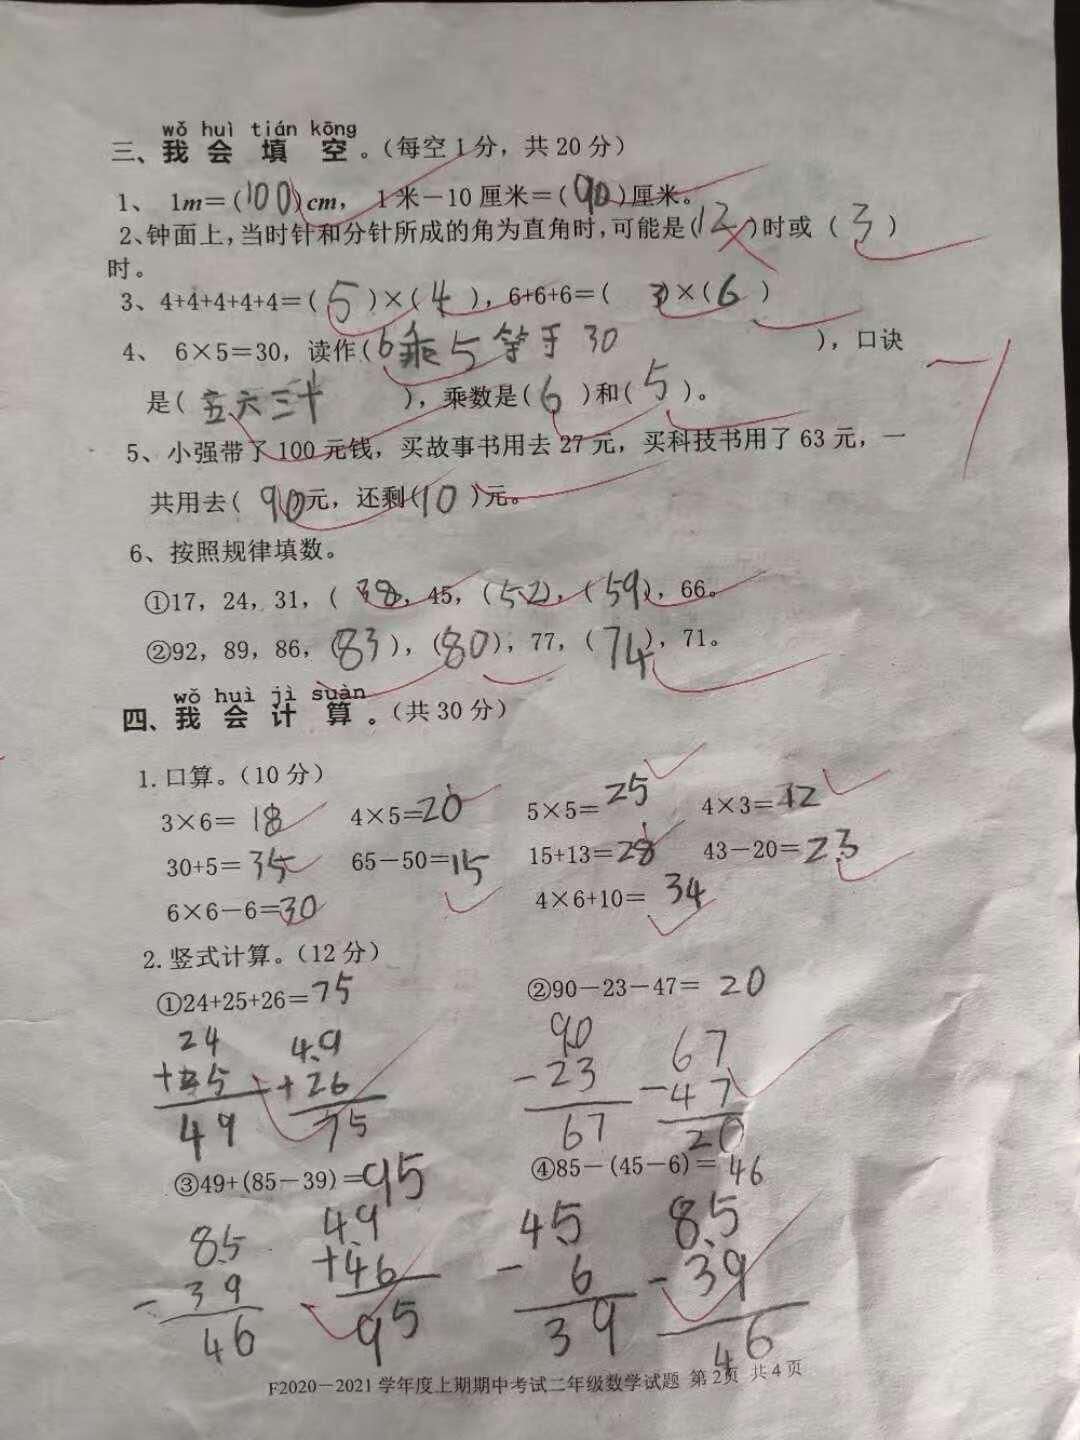 wǒ huì tián kōng
三、我 会 填 空。（每空1分，共20分）
1、 1m=(100)cm， 1米－10厘米=(90)厘米。
2、钟面上，当时针和分针所成的角为直角时，可能是(12)时或（3）
时。
3、4+4+4+4+4=(5)×(4)，6+6+6=(3)×(6)
4、 6×5=30，读作(6乘5等于30)，口诀
是(五六三十)，乘数是(6)和(5)。
5、小强带了100元钱，买故事书用去27元，买科技书用了63元，一
共用去(90)元，还剩(10)元。
6、按照规律填数。
①17，24，31，(38)，45，(52)，(59)，66。
②92，89，86，(83)，(80)，77，(74)，71。
wǒ huì jì suàn
四、我 会 计 算。（共30分）
1.口算。（10分）
3×6=18 4×5=20 5×5=25 4×3=12
30+5=35 65－50=15 15+13=28 43－20=23
6×6－6=30 4×6+10=34
2.竖式计算。（12分）
①24+25+26=75 ②90－23－47=20
24 49 90 67
+25 +26 -23 -47
49 75 67 20
③49+(85－39)=95 ④85－(45－6)=46
85 49 45 85
-39 +46 -6 -39
46 95 39 46
F2020－2021学年度上期期中考试二年级数学试题 第2页 共4页
－1